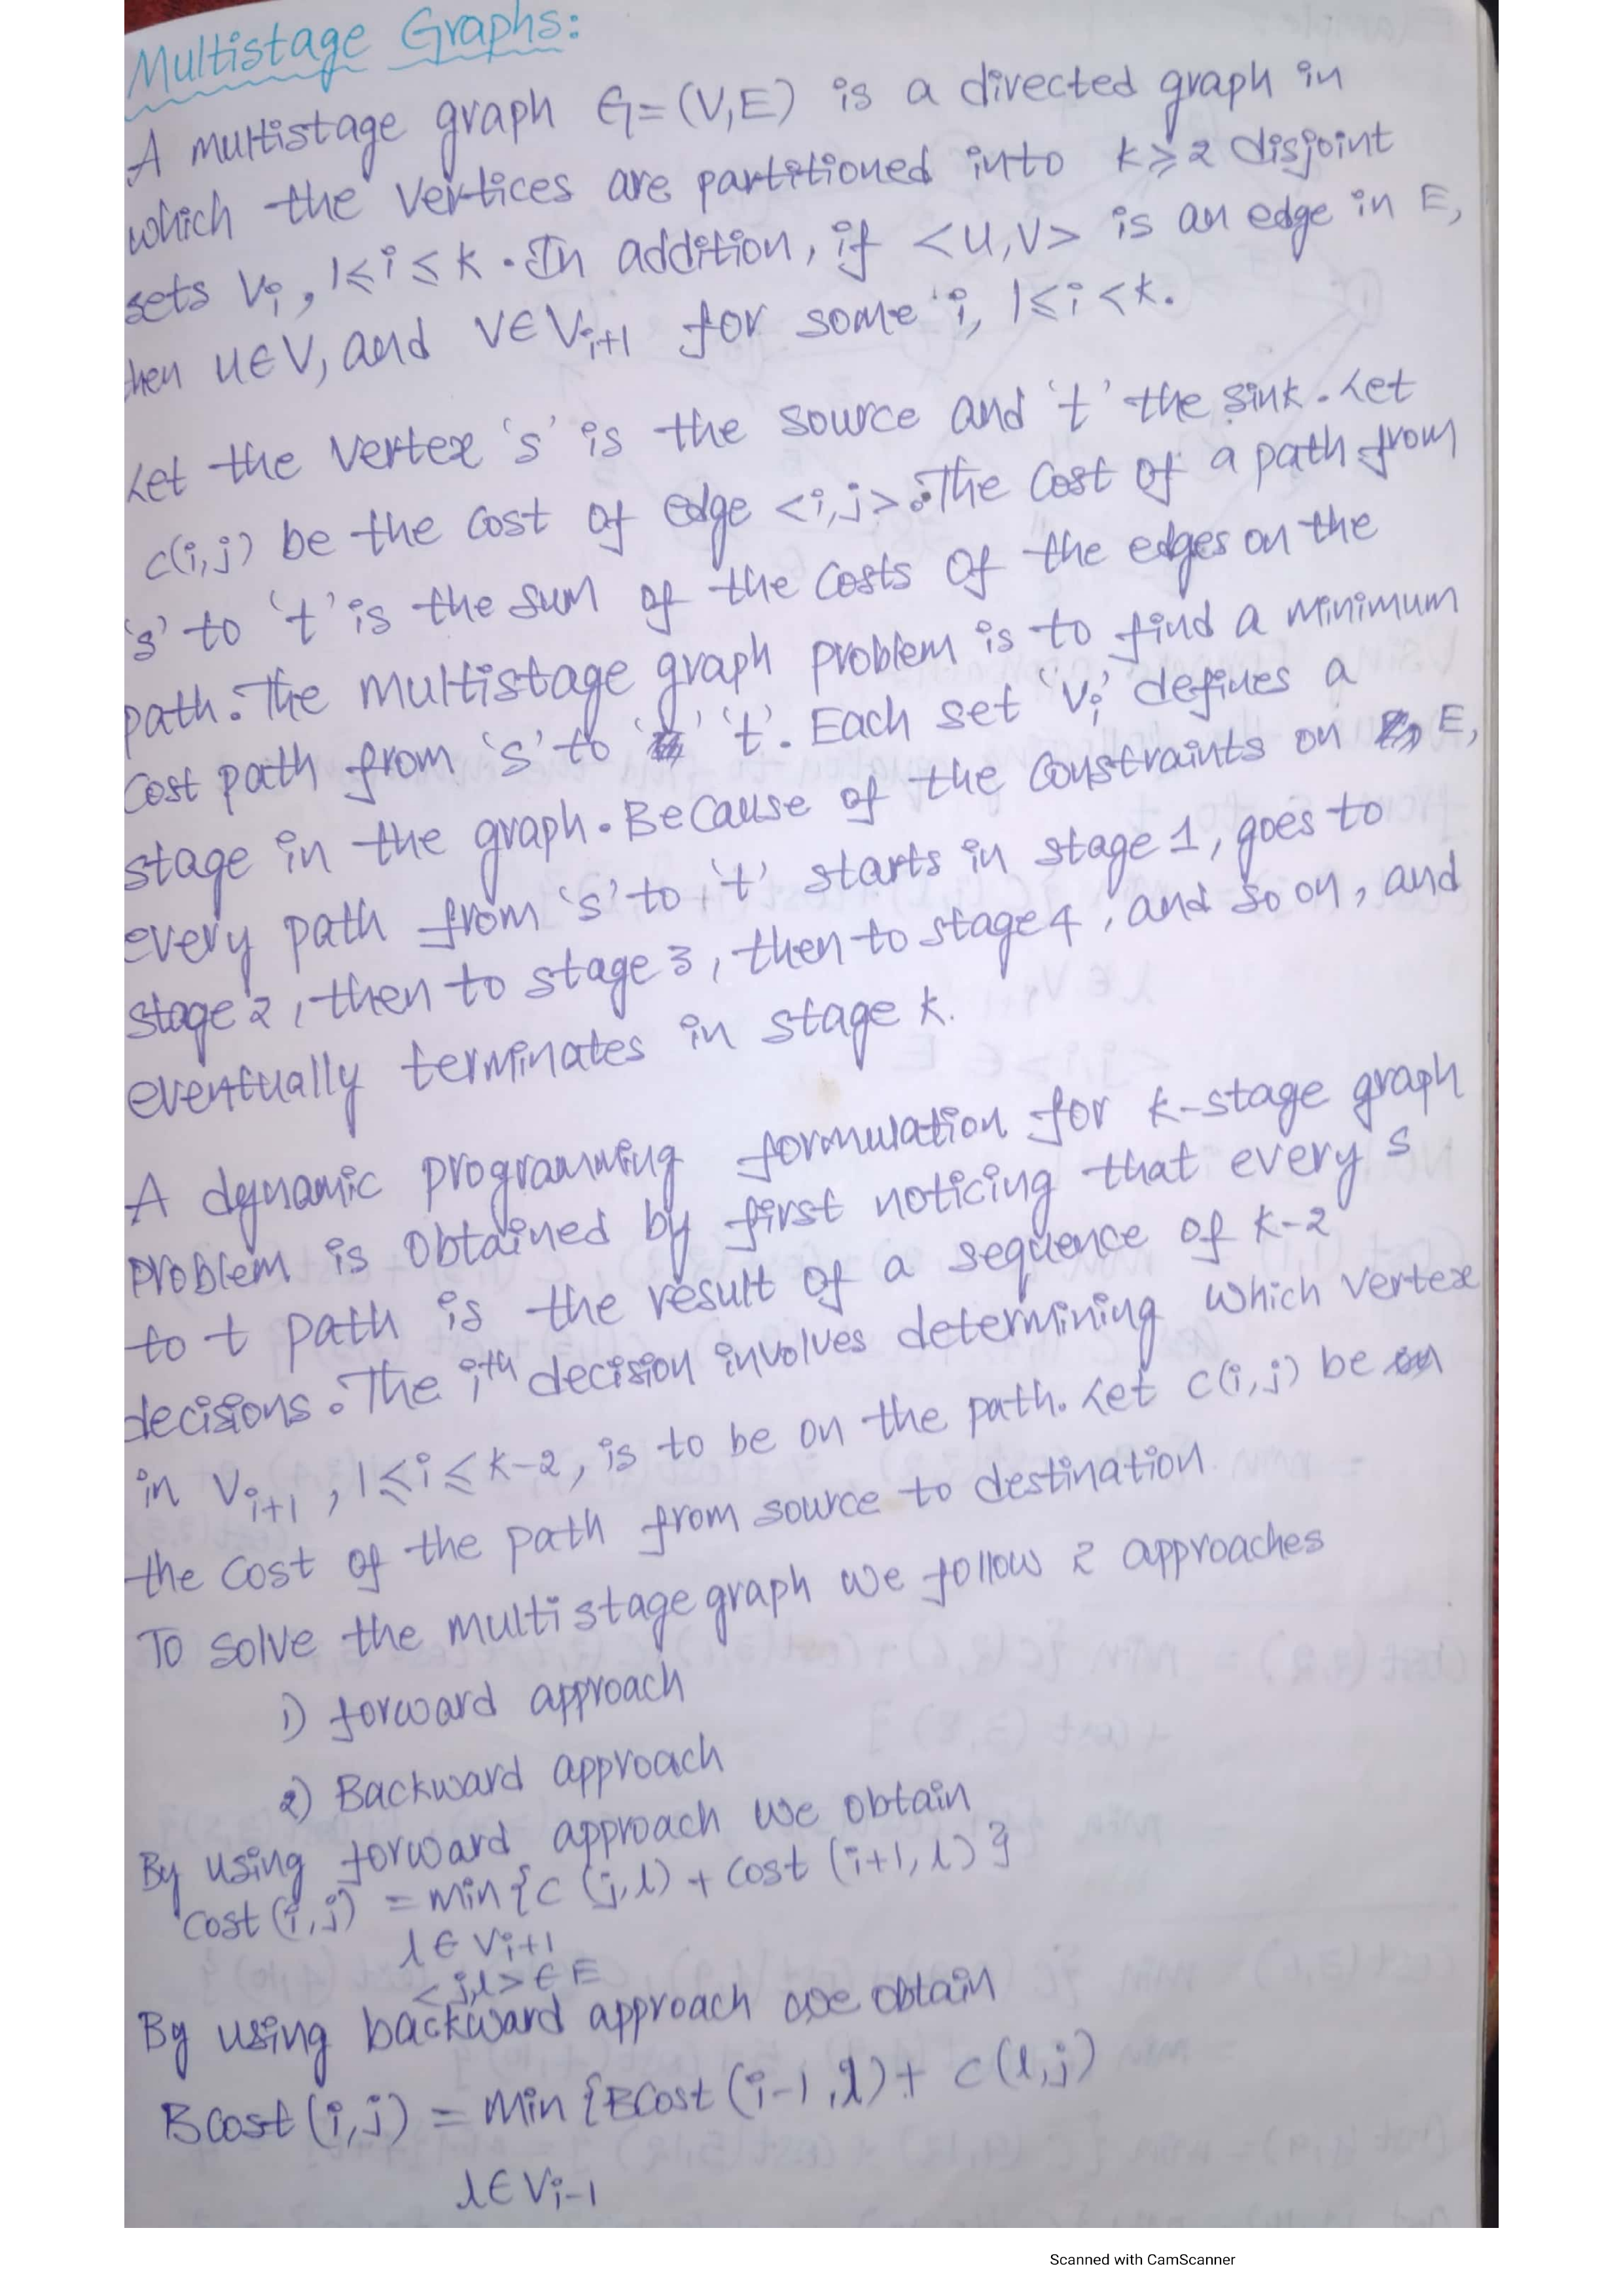 Multistage Graphs:
A multistage graph G=(V,E) is a directed graph in
which the vertices are partitioned into k≥2 disjoint
sets Vi, 1≤i≤k. In addition, if <u,v> is an edge in E,
then u∈V, and v∈Vi+1 for some i, 1≤i<k.
Let the vertex 's' is the source and 't' the sink. Let
c(i,j) be the cost of edge <i,j>. The cost of a path from
's' to 't' is the sum of the costs of the edges on the
path. The multistage graph problem is to find a minimum
cost path from 's' to 't'. Each set 'Vi' defines a
stage in the graph. Because of the constraints on E,
every path from 's' to 't' starts in stage 1, goes to
stage 2, then to stage 3, then to stage 4, and so on, and
eventually terminates in stage k.
A dynamic programming formulation for k-stage graph
problem is obtained by first noticing that every s
to t path is the result of a sequence of k-2
decisions. The ith decision involves determining which vertex
in Vi+1, 1≤i≤k-2, is to be on the path. Let c(i,j) be
the cost of the path from source to destination.
To solve the multistage graph we follow 2 approaches
1) forward approach
2) Backward approach
By using forward approach we obtain
cost(i,j) = min{c(j,l) + cost(i+1,l)}
l∈Vi+1
<j,l>∈E
By using backward approach we obtain
Bcost(i,j) = min{Bcost(i-1,l)+ c(l,j)
l∈Vi-1
Scanned with CamScanner